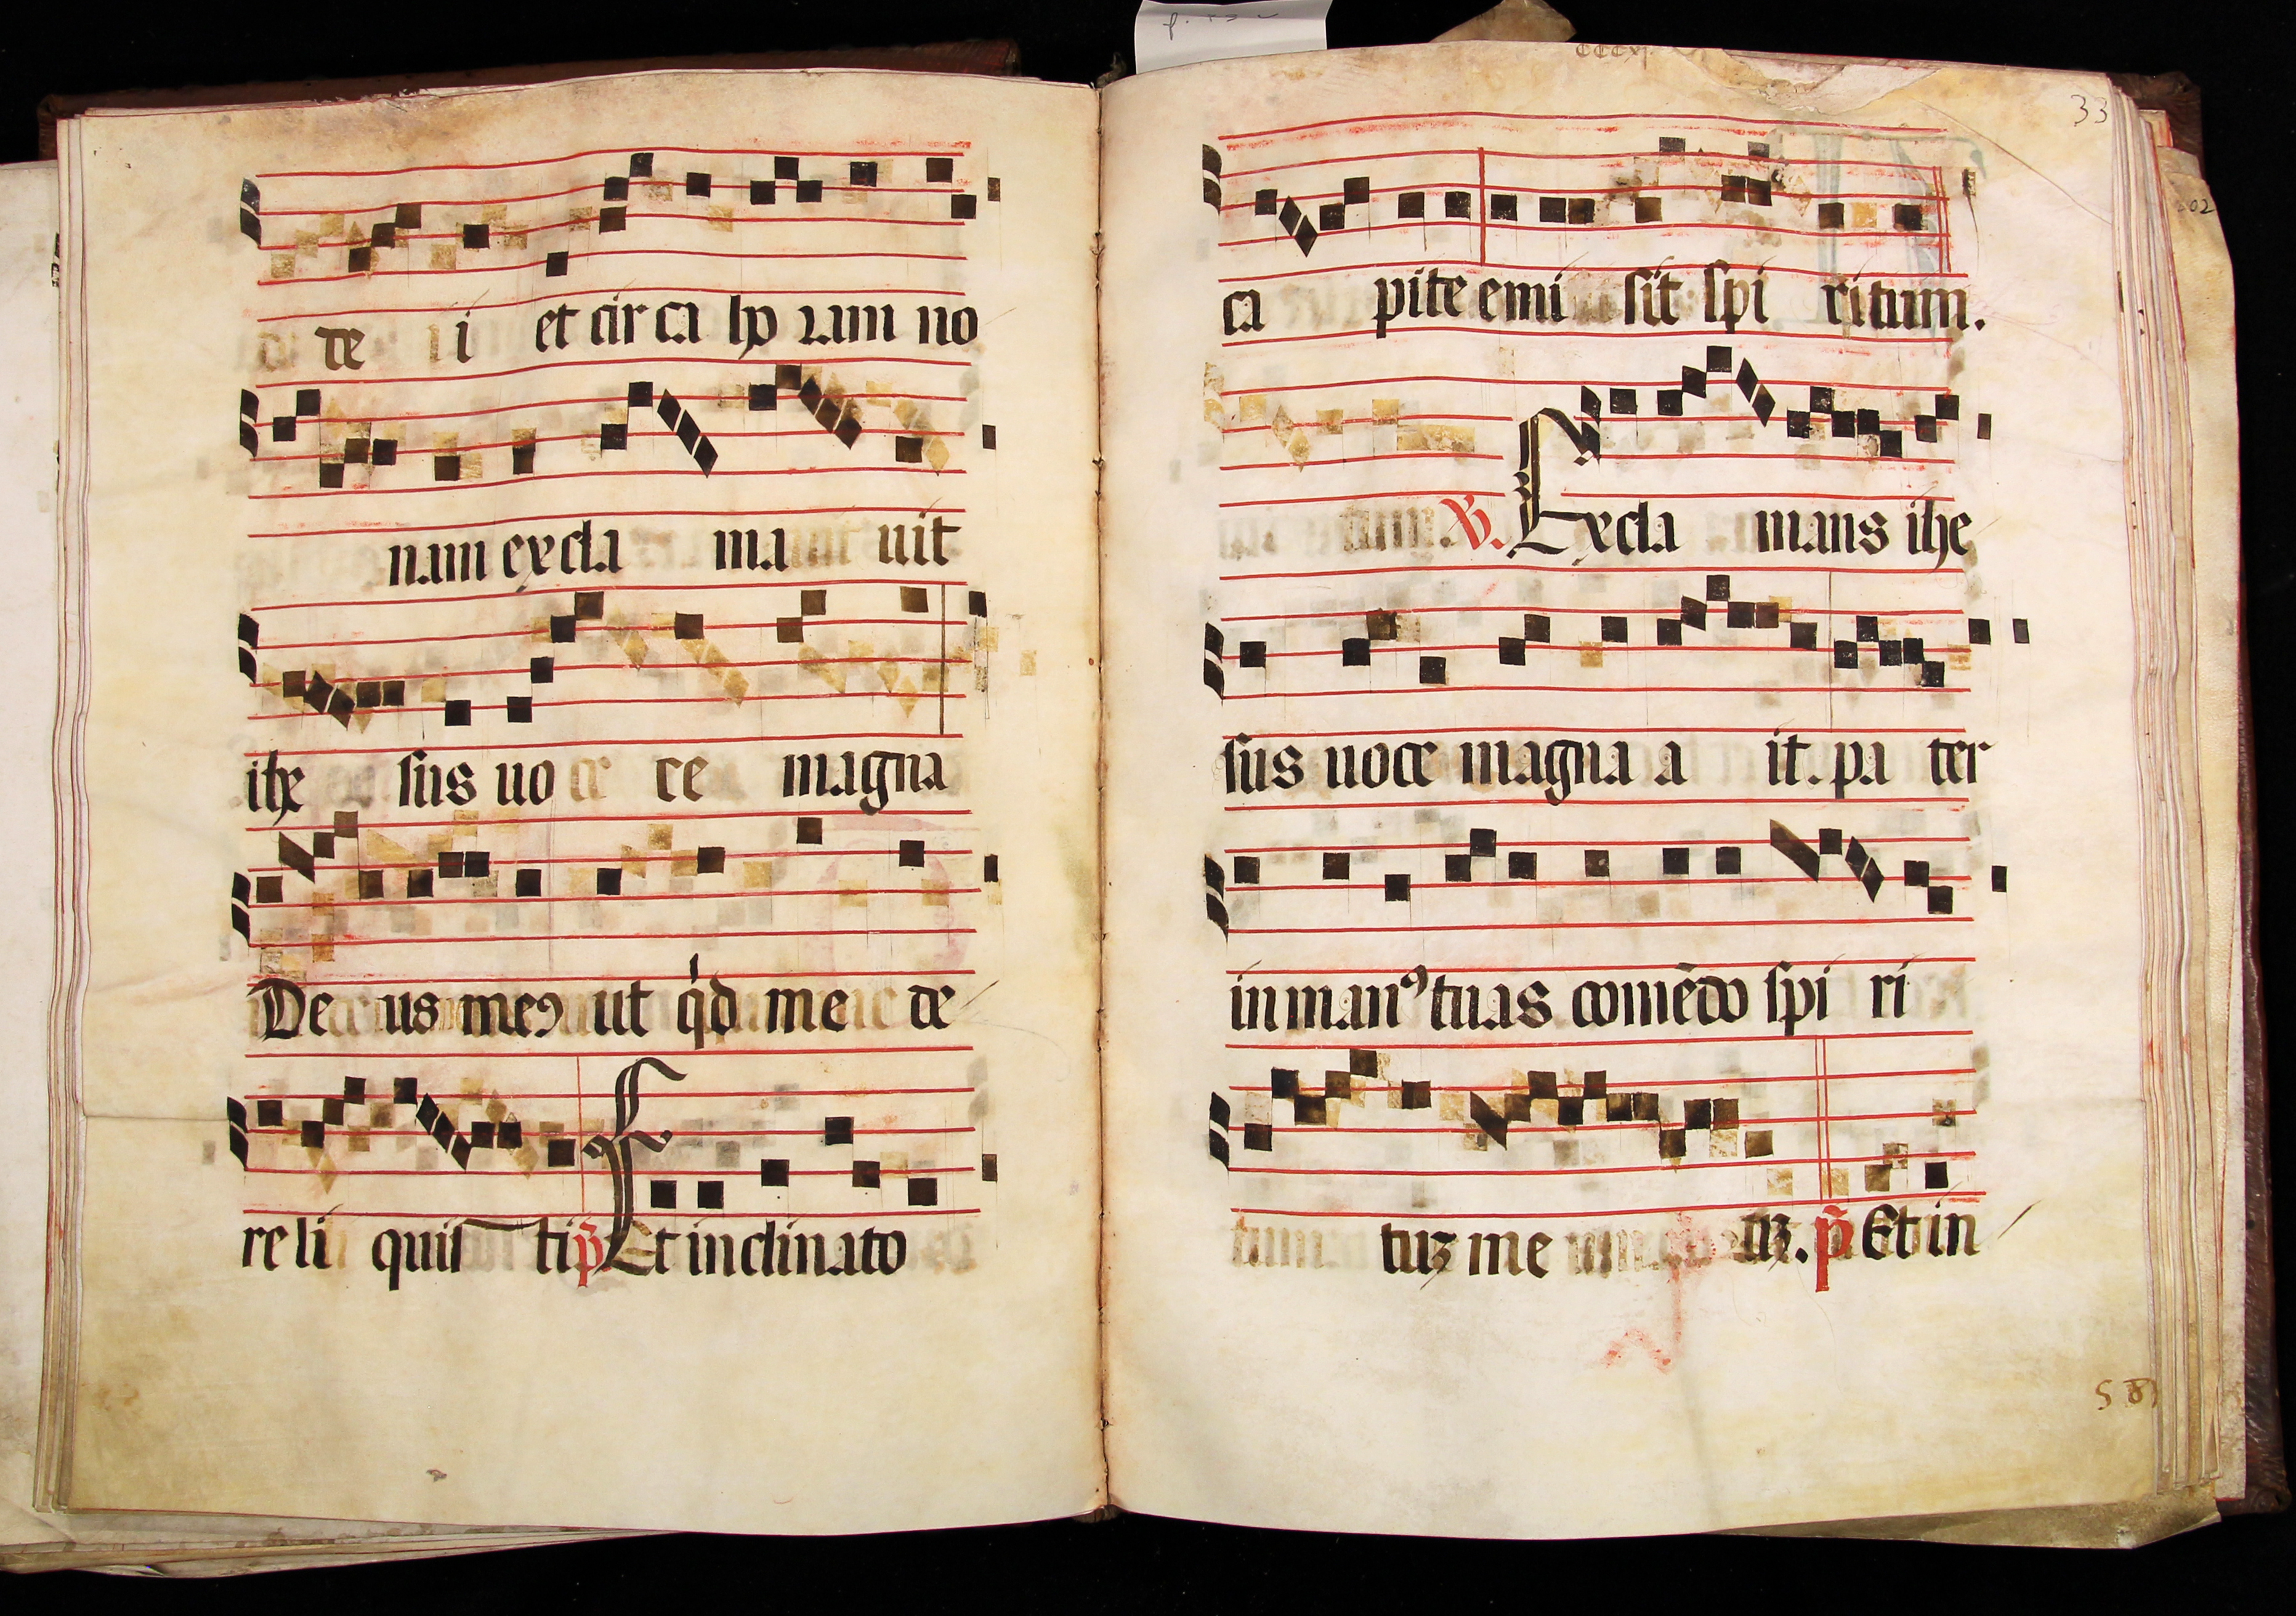 de i et circa horam no
nam excla ma uit
ihe sus uo ce magna
De us me9 ut qd me de
re li quis ti p Et inclinato
33
ca pite emi sit spi ritum.
V. Excla mans ihe
sus uoce magna a it. pa ter
in man9 tuas comēdo spi ri
tuꝫ me uꝫ. p Et in
58
02